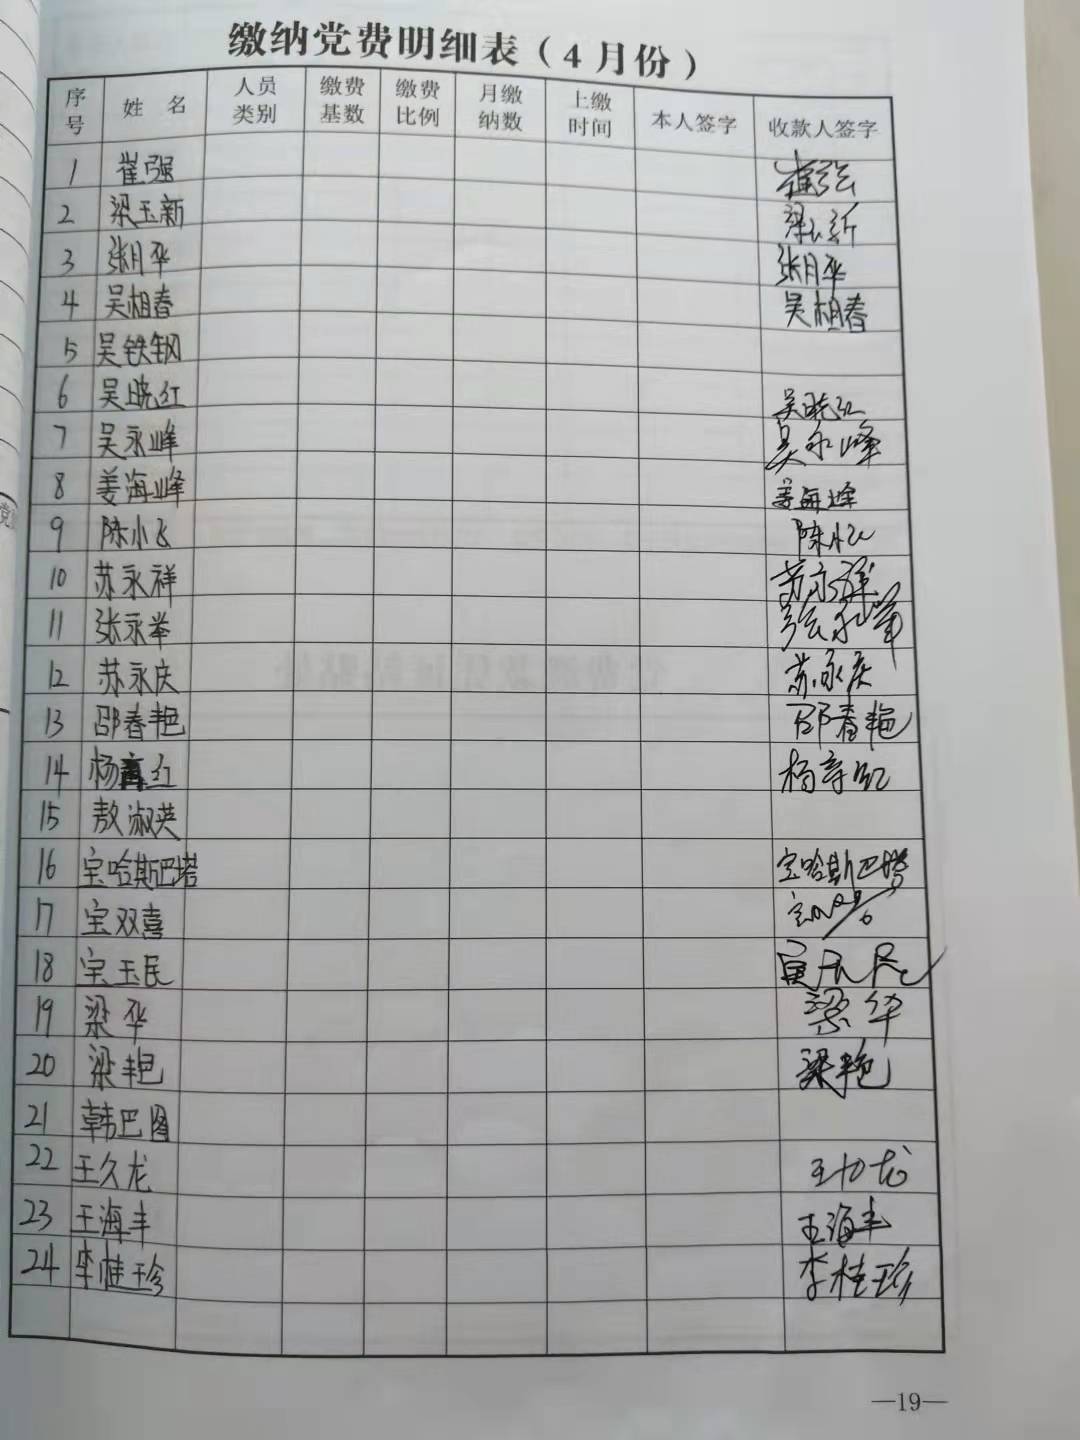 缴纳党费明细表（4月份）
序号 姓名 人员类别 缴费基数 缴费比例 月缴纳数 上缴时间 本人签字 收款人签字
1 崔强 崔强
2 梁玉新 梁玉新
3 张月华 张月华
4 吴相春 吴相春
5 吴铁钢
6 吴晓红 吴晓红
7 吴永峰 吴永峰
8 姜海峰 姜海峰
9 陈小飞 陈小飞
10 苏永祥 苏永祥
11 张永举 张永举
12 苏永庆 苏永庆
13 邵春艳 邵春艳
14 杨 红 杨 红
15 敖淑英
16 宝哈斯巴塔 宝哈斯巴塔
17 宝双喜
18 宝玉民 宝玉民
19 梁华 梁华
20 梁艳 梁艳
21 韩巴图
22 王久龙 王久龙
23 王海丰 王海丰
24 李桂珍 李桂珍
—19—